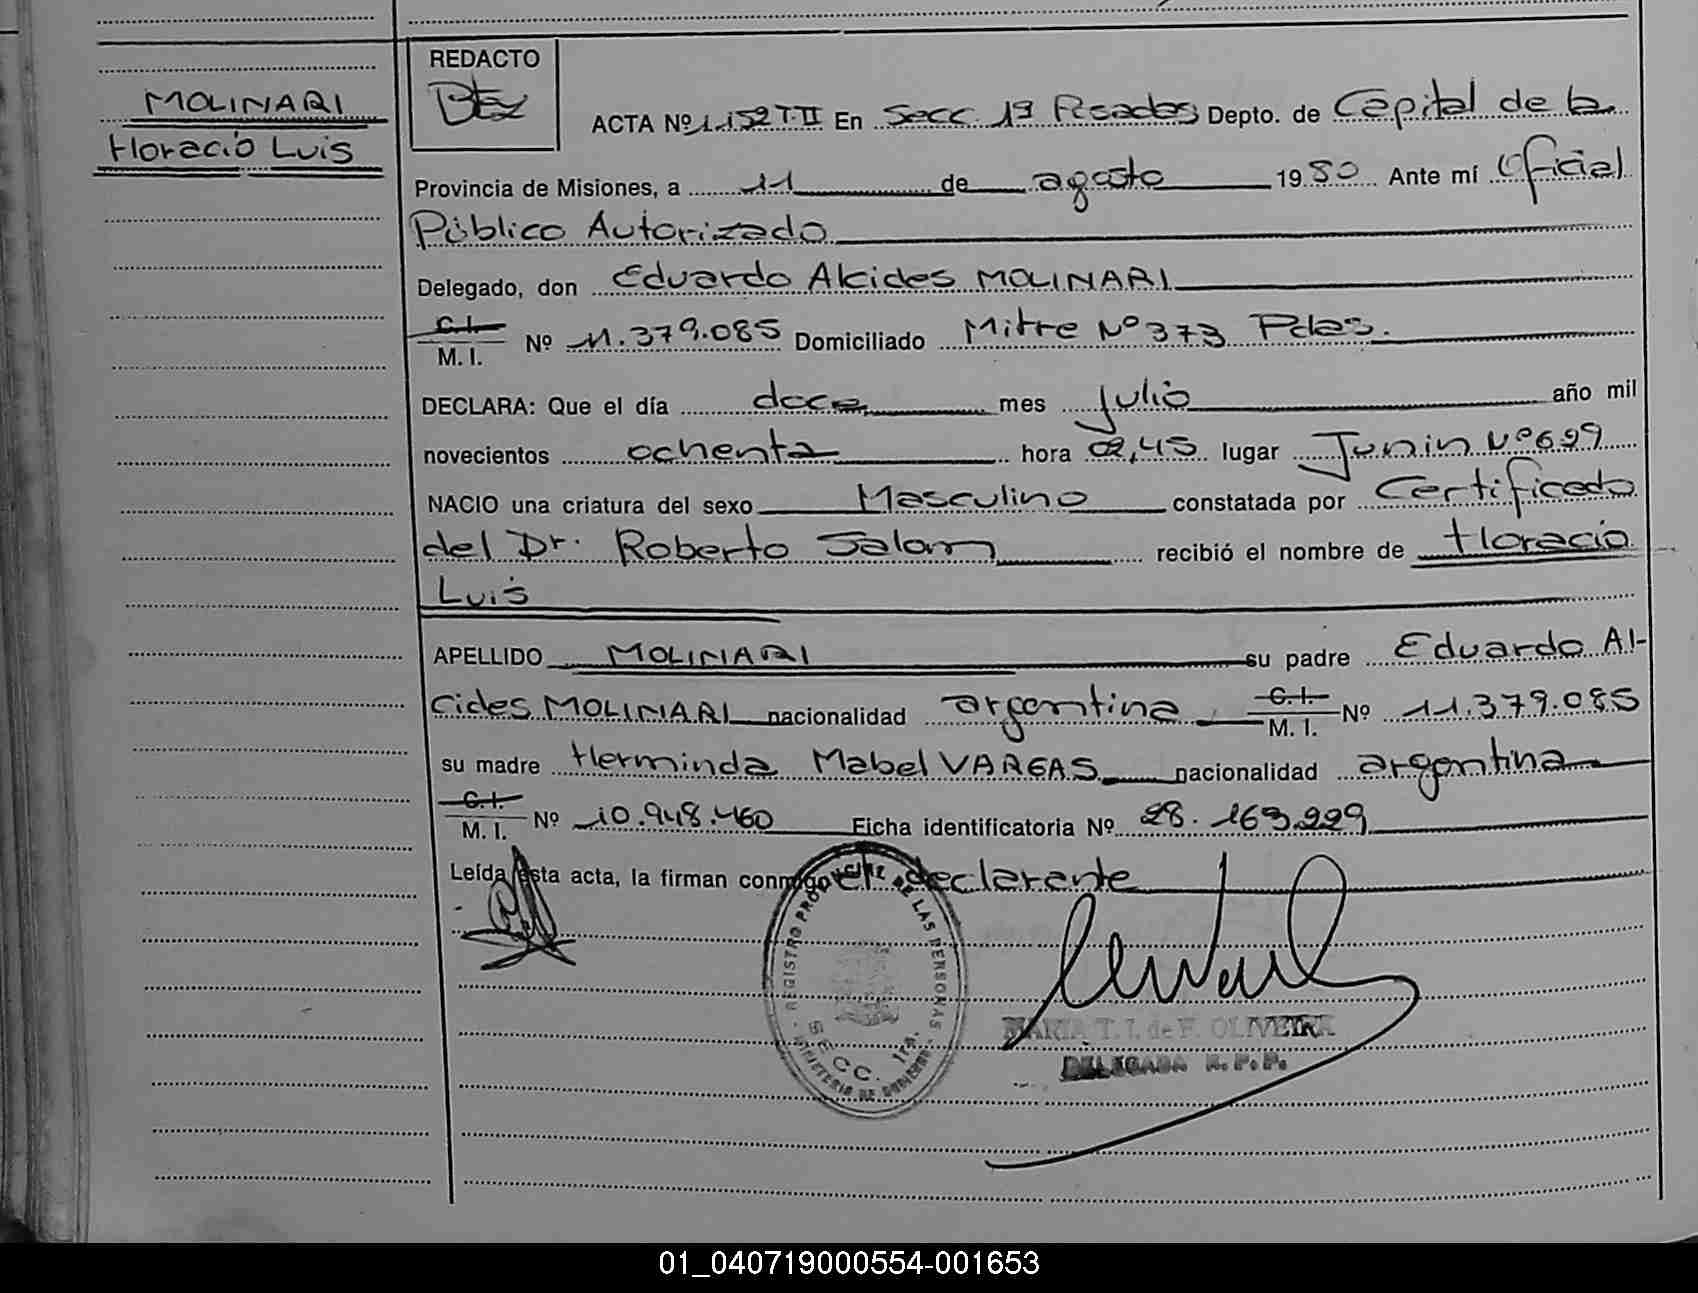 MOLINARI
Horacio Luis
REDACTO
ACTA Nº 1.152 T. II En Secc. 1ª Posadas Depto. de Capital de la
Provincia de Misiones, a 11 de agosto 1980 Ante mí Oficial
Público Autorizado
Delegado, don Eduardo Alcides MOLINARI
C.I.
M. I. Nº 11.379.085 Domiciliado Mitre Nº 373 Pdas.
DECLARA: Que el día doce mes julio año mil
novecientos ochenta hora 02,45 lugar Junin Nº 699
NACIO una criatura del sexo Masculino constatada por Certificado
del Dr. Roberto Salom recibió el nombre de Horacio
Luis
APELLIDO MOLINARI su padre Eduardo Al-
cides MOLINARI nacionalidad argentina C.I. M. I. Nº 11.379.085
su madre Herminda Mabel VARGAS nacionalidad argentina
C.I.
M. I. Nº 10.948.460 Ficha identificatoria Nº 28.169.229
Leída esta acta, la firman conmigo el declarante
REGISTRO PROVINCIAL DE LAS PERSONAS
SECC. 1ra.
MINISTERIO DE GOBIERNO
MARIA T. I. de F. OLIVEIRA
DELEGADA R. P. P.
01_040719000554-001653